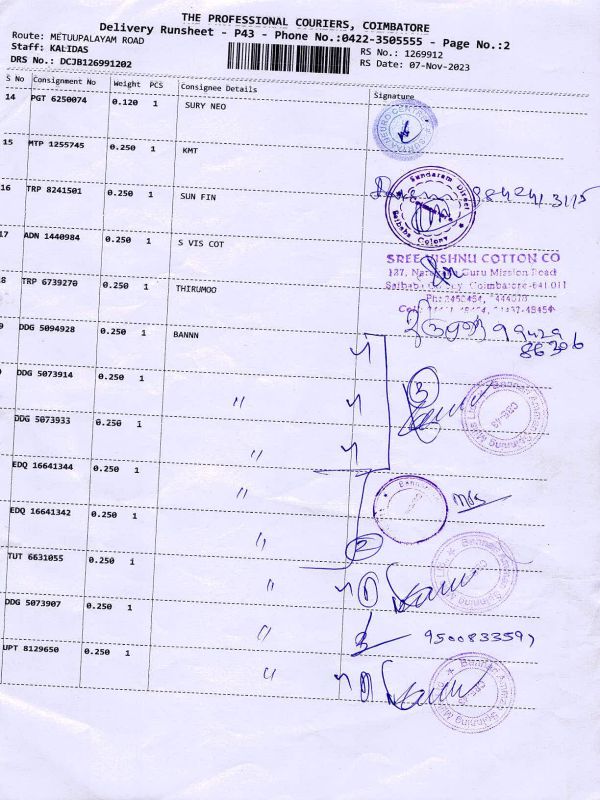 THE PROFESSIONAL COURIERS, COIMBATORE
Delivery Runsheet - P43 - Phone No.:0422-3505555 - Page No.:2
Route: METUUPALAYAM ROAD
Staff: KALIDAS
RS No.: 1269912
DRS No.: DCJB126991202
RS Date: 07-Nov-2023
S No Consignment No Weight PCS Consignee Details Signature
14 PGT 6250074 0.120 1 SURY NEO
15 MTP 1255745 0.250 1 KMT
16 TRP 8241501 0.250 1 SUN FIN
Sundaram Direct
Saibaba Colony
17 ADN 1440984 0.250 1 S VIS COT
SREE VISHNU COTTON CO
127, Guru Mission Road
Saibaba Colony, Coimbatore-641 011
8 TRP 6739270 0.250 1 THIRUMOO
99429
86306
9 DDG 5094928 0.250 1 BANNN
DDG 5073914 0.250 1 〃
3
DDG 5073933 0.250 1 〃
EDQ 16641344 0.250 1 〃
EDQ 16641342 0.250 1 〃
2
TUT 6631055 0.250 1 〃
1
DDG 5073907 0.250 1 〃
9500833597
UPT 8129650 0.250 1 〃